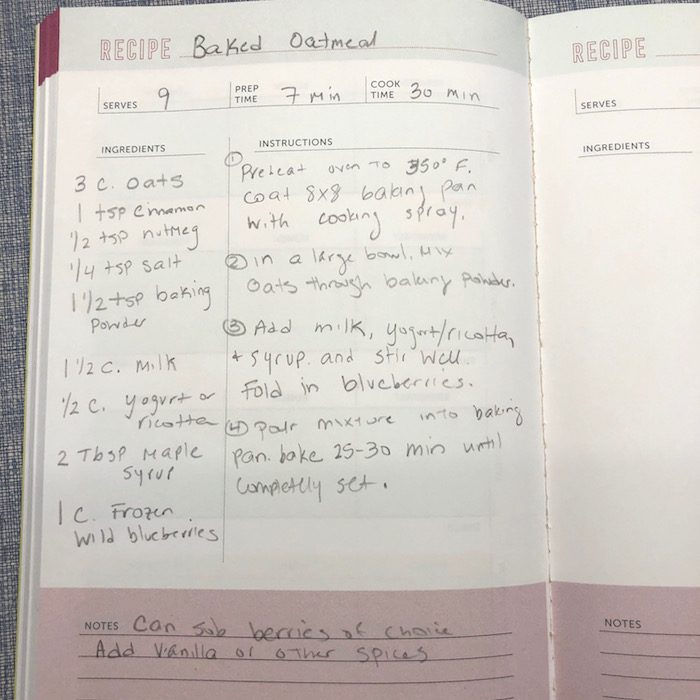 RECIPE Baked Oatmeal
SERVES 9 PREP TIME 7 min COOK TIME 30 min
INGREDIENTS
3 c. oats
1 tsp cinnamon
1/2 tsp nutmeg
1/4 tsp salt
1 1/2 tsp baking
powder
1 1/2 c. milk
1/2 c. yogurt or
ricotta
2 Tbsp maple
syrup
1 c. Frozen
wild blueberries
INSTRUCTIONS
① Preheat oven to 350° F.
coat 8x8 baking pan
with cooking spray.
② in a large bowl, mix
oats through baking powder.
③ Add milk, yogurt/ricotta,
+ syrup. and stir well.
Fold in blueberries.
④ pour mixture into baking
pan. bake 25-30 min until
completely set.
NOTES Can sub berries of choice
Add vanilla or other spices
RECIPE
SERVES
INGREDIENTS
NOTES